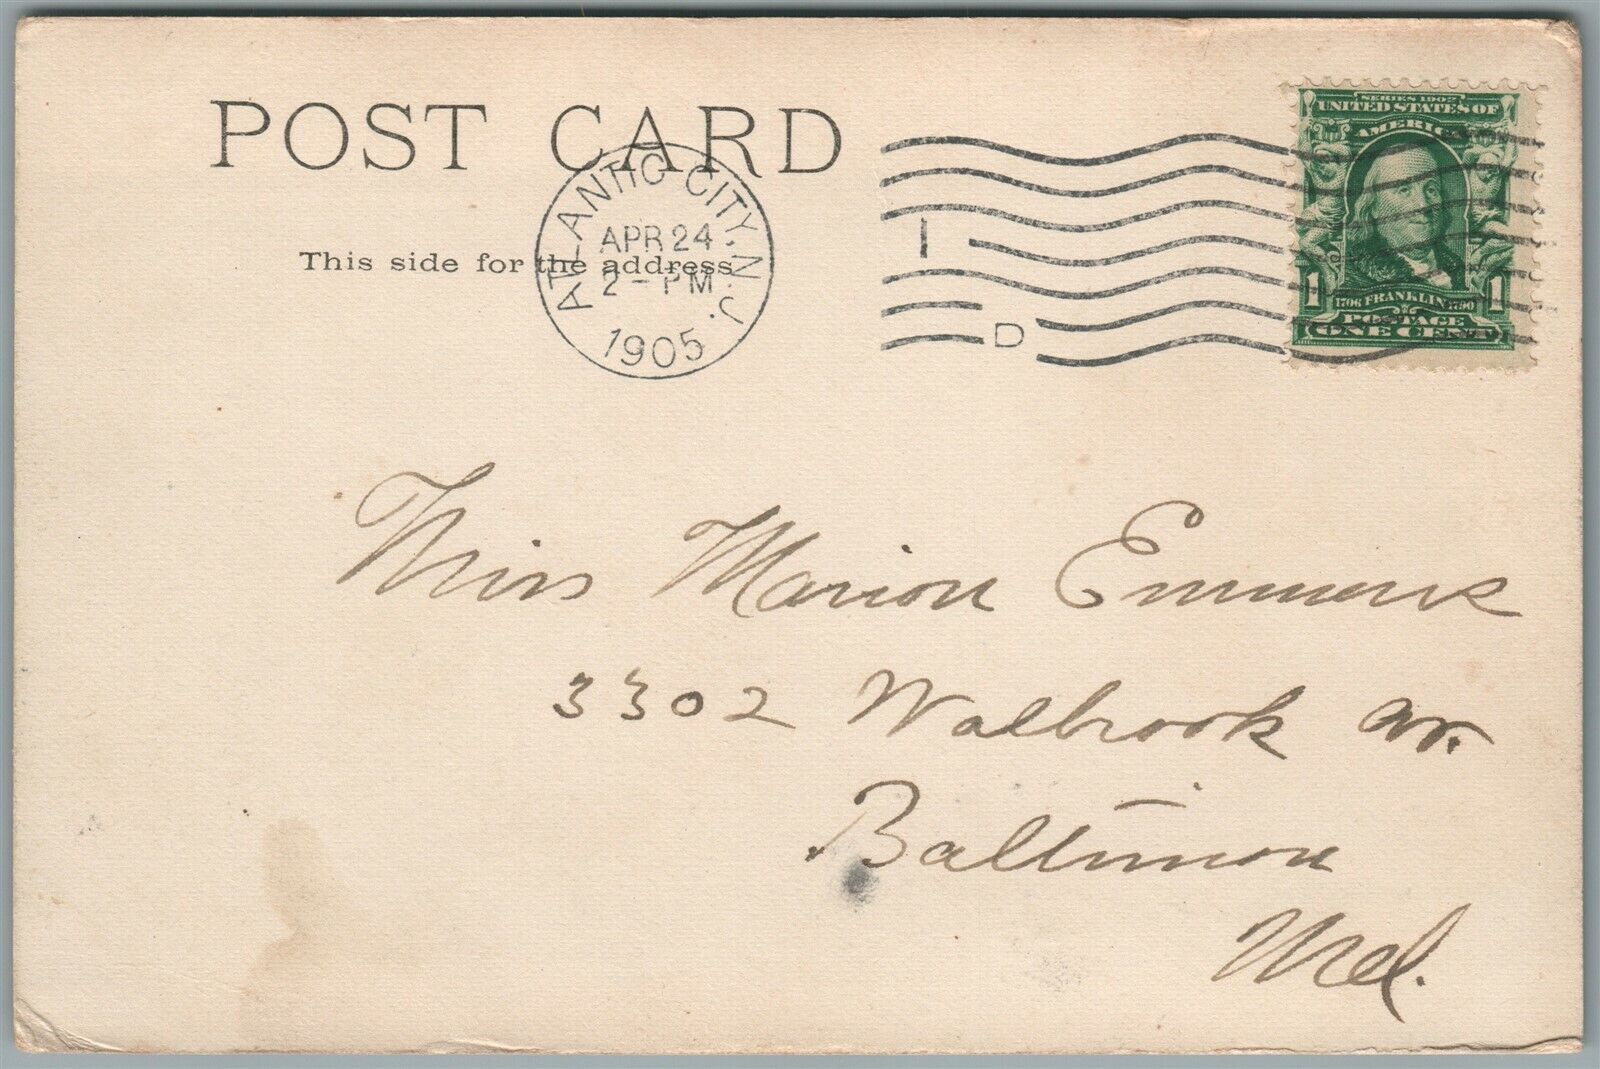 POST CARD
This side for the address
ATLANTIC CITY, N.J.
APR 24
2 - PM
1905
I
D
SERIES 1902
UNITED STATES OF
AMERICA
1 1706 FRANKLIN 1790 1
POSTAGE
ONE CENT
Miss Marion Emmons
3302 Walbrook Av.
Baltimore
Md.